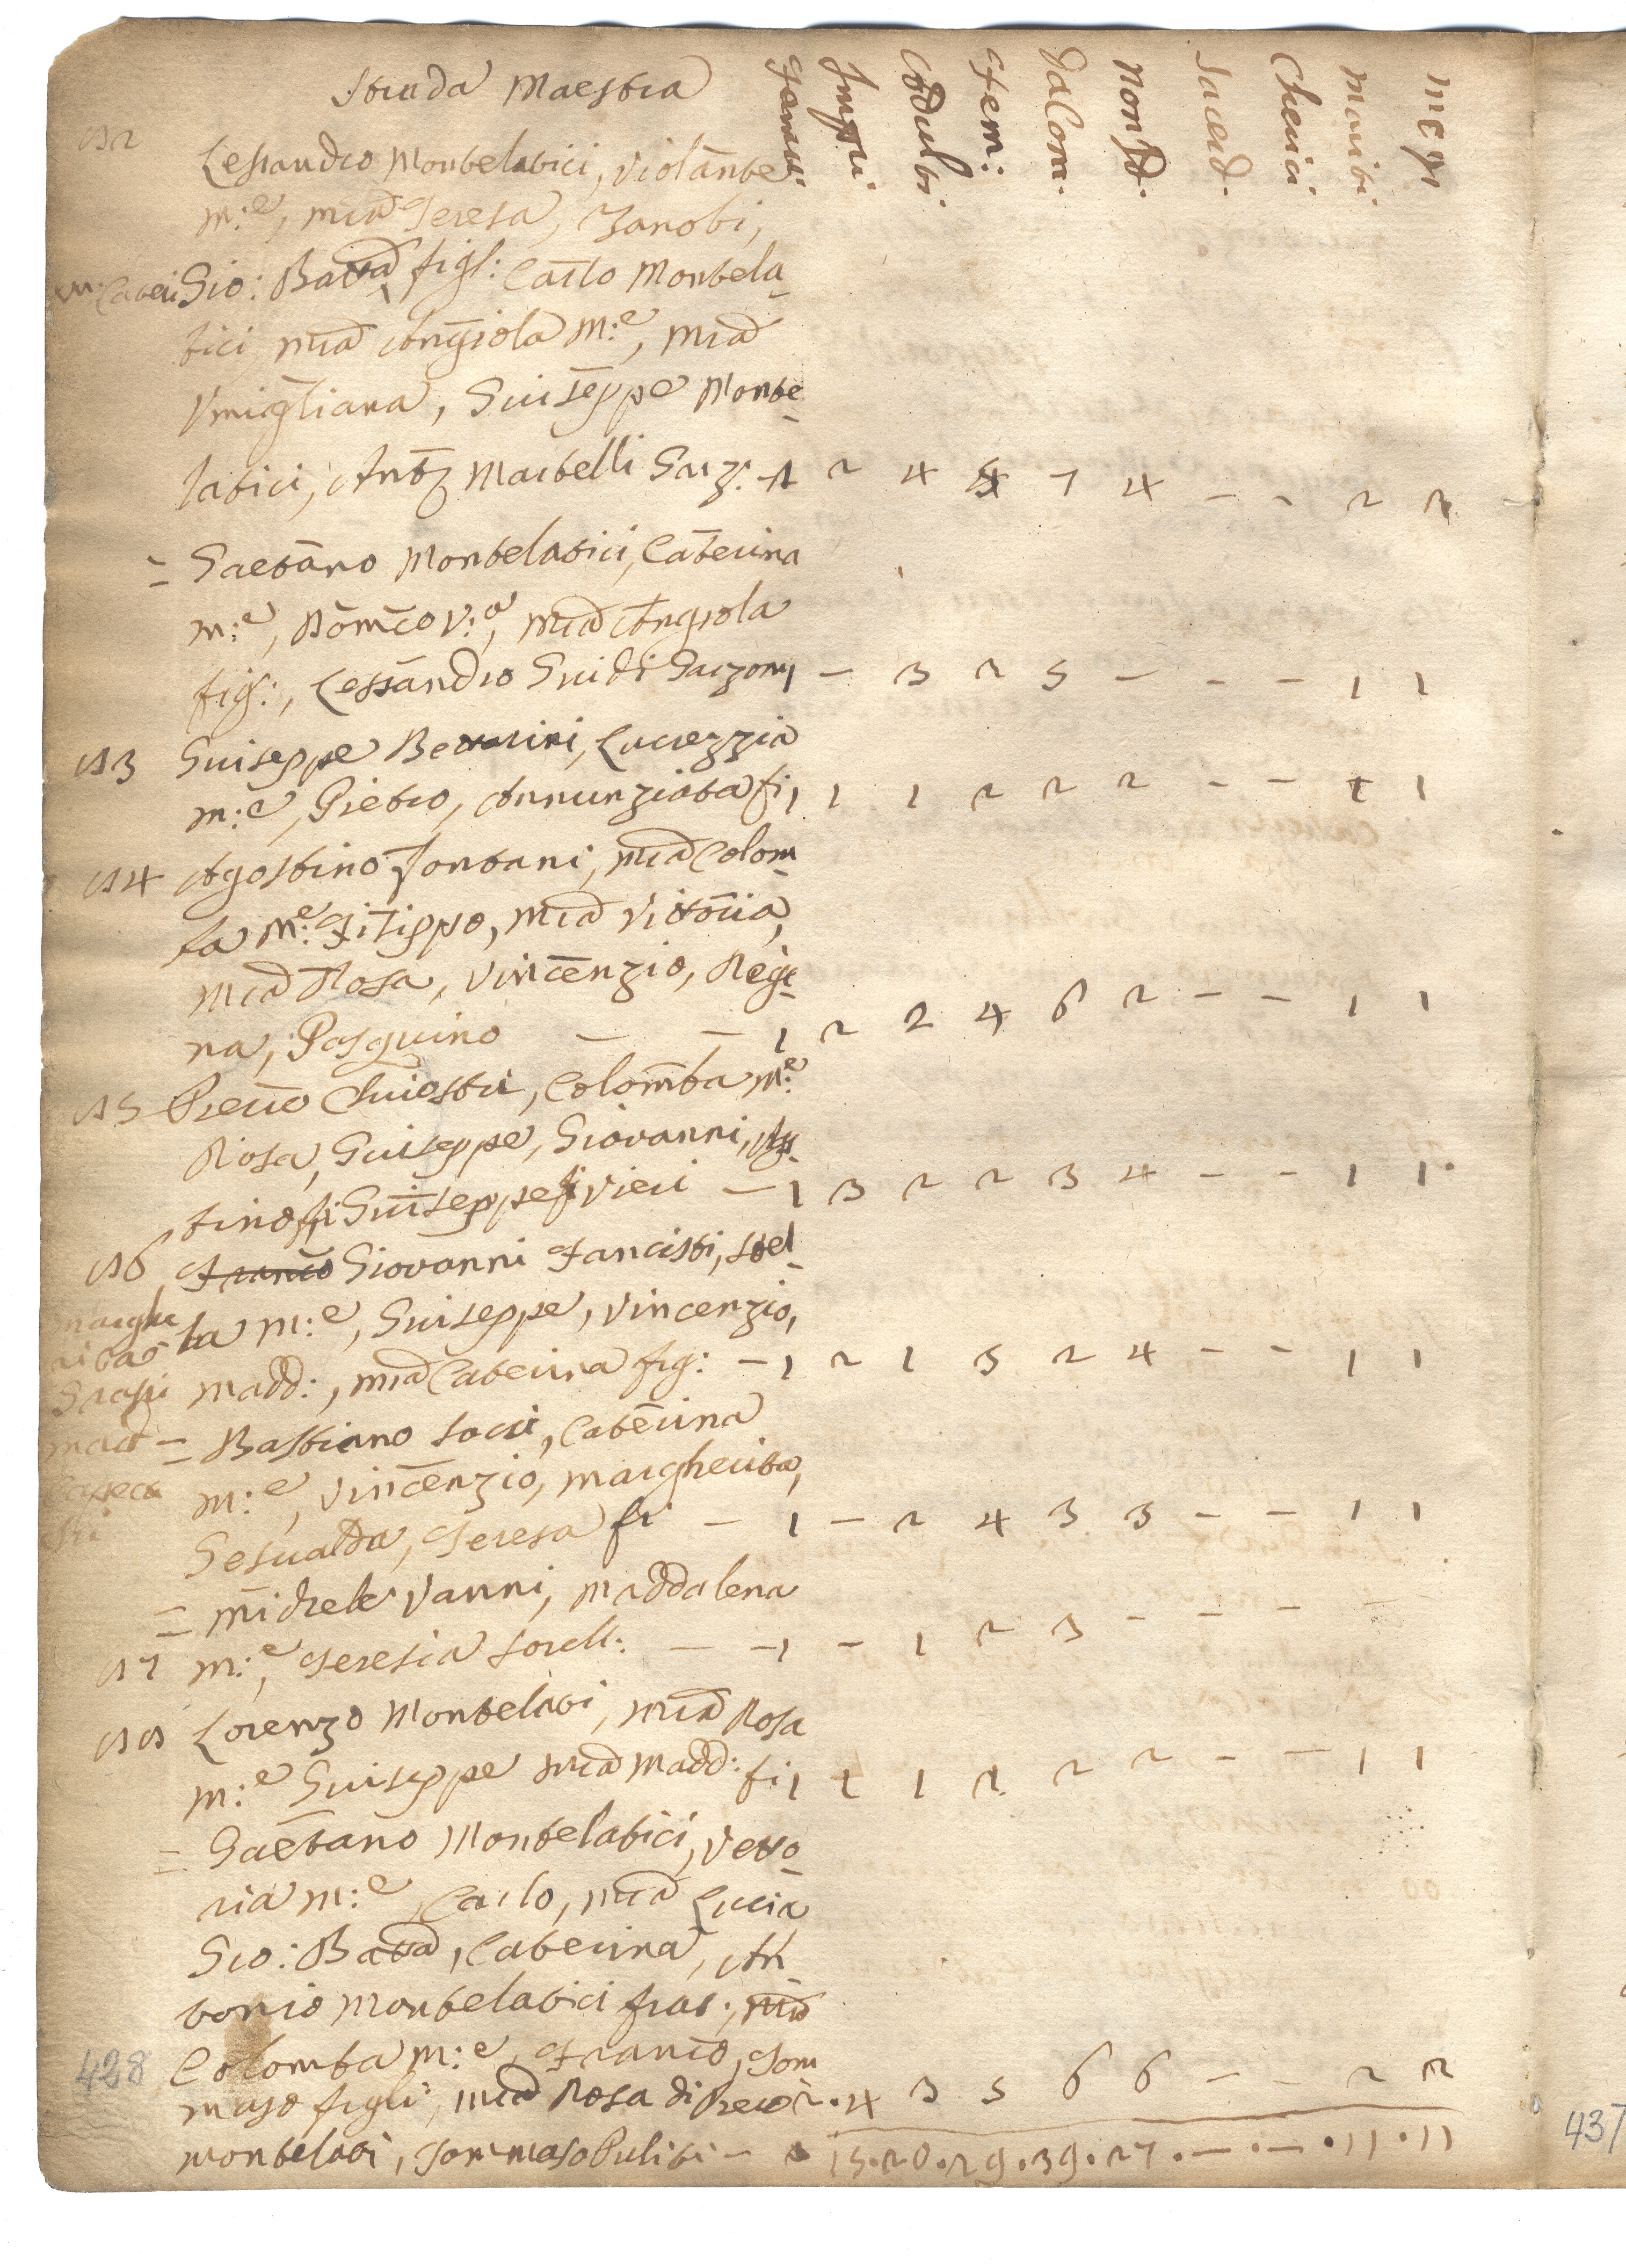 Strada Maestra
Famili: Impu: Adulti Fem: da Com: Non sd: Sacerd: Cherici Mariti Mogi
82 Lessandro Montelatici, Violante
m:e, Mia Teresa, Zanobi,
Gio: Batta figl: Carlo Montela
tici Mia Angiola m:e, Mia
Vmigliana, Giuseppe Monte
latici, Anto Martelli Garz: 1 2 4 7 4 - - 2 2
= Gaetano Montelatici, Caterina
m:e, Domco V:o, Mia Angiola
fig:, Lessandro Guidi Garzon 1 - 3 2 5 - - - 1 1
83 Giuseppe Bettarini, Lucrezzia
m:e, Pietro, Annunziata fi 1 1 1 2 2 2 - - 1 1
84 Agostino Fontani, Mia Colom
ba m:e Filippo, Mia Vittoria,
Mia Rosa, Vincenzio, Regi
na, Pasquino - - 1 2 2 4 6 2 - - 1 1
85 Piero Chiostri, Colomba m:e
Rosa, Giuseppe, Giovanni, Ags
tino fi Giuseppe Vieri - 1 3 2 2 3 4 - - 1 1
86 Franco Giovanni Fancisti, Stel
la m:e, Giuseppe, Vincenzio,
Madd:, Mia Caterina fig: - 1 2 1 5 2 4 - - 1 1
Marghe
rita
= Bastiano Socci, Caterina
m:e, Vincenzio, Margherita,
Gesualda, Teresa fi - 1 - 2 4 3 3 - - 1 1
= Michele Vanni, Maddalena
87 m:e, Teresia sorell: - - 1 - 1 2 3 - - - -
88 Lorenzo Montelati, Mia Rosa
m:e Giuseppe Mia Madd: fi 1 1 1 2 2 2 - - 1 1
= Gaetano Montelatici, Vetto
ria m:e, Carlo, Mia Lucia
Gio: Batta, Caterina, An
tonio Montelatici frat:, Mia
Colomba m:e, Franco, Tom
maso figli, Mia Rosa di Piero 2 . 4 3 5 6 6 - - 2 2
montelati, Tommaso Puliti -
15 . 20 . 29 . 39 . 27 . - . - . 11 . 11
428
437